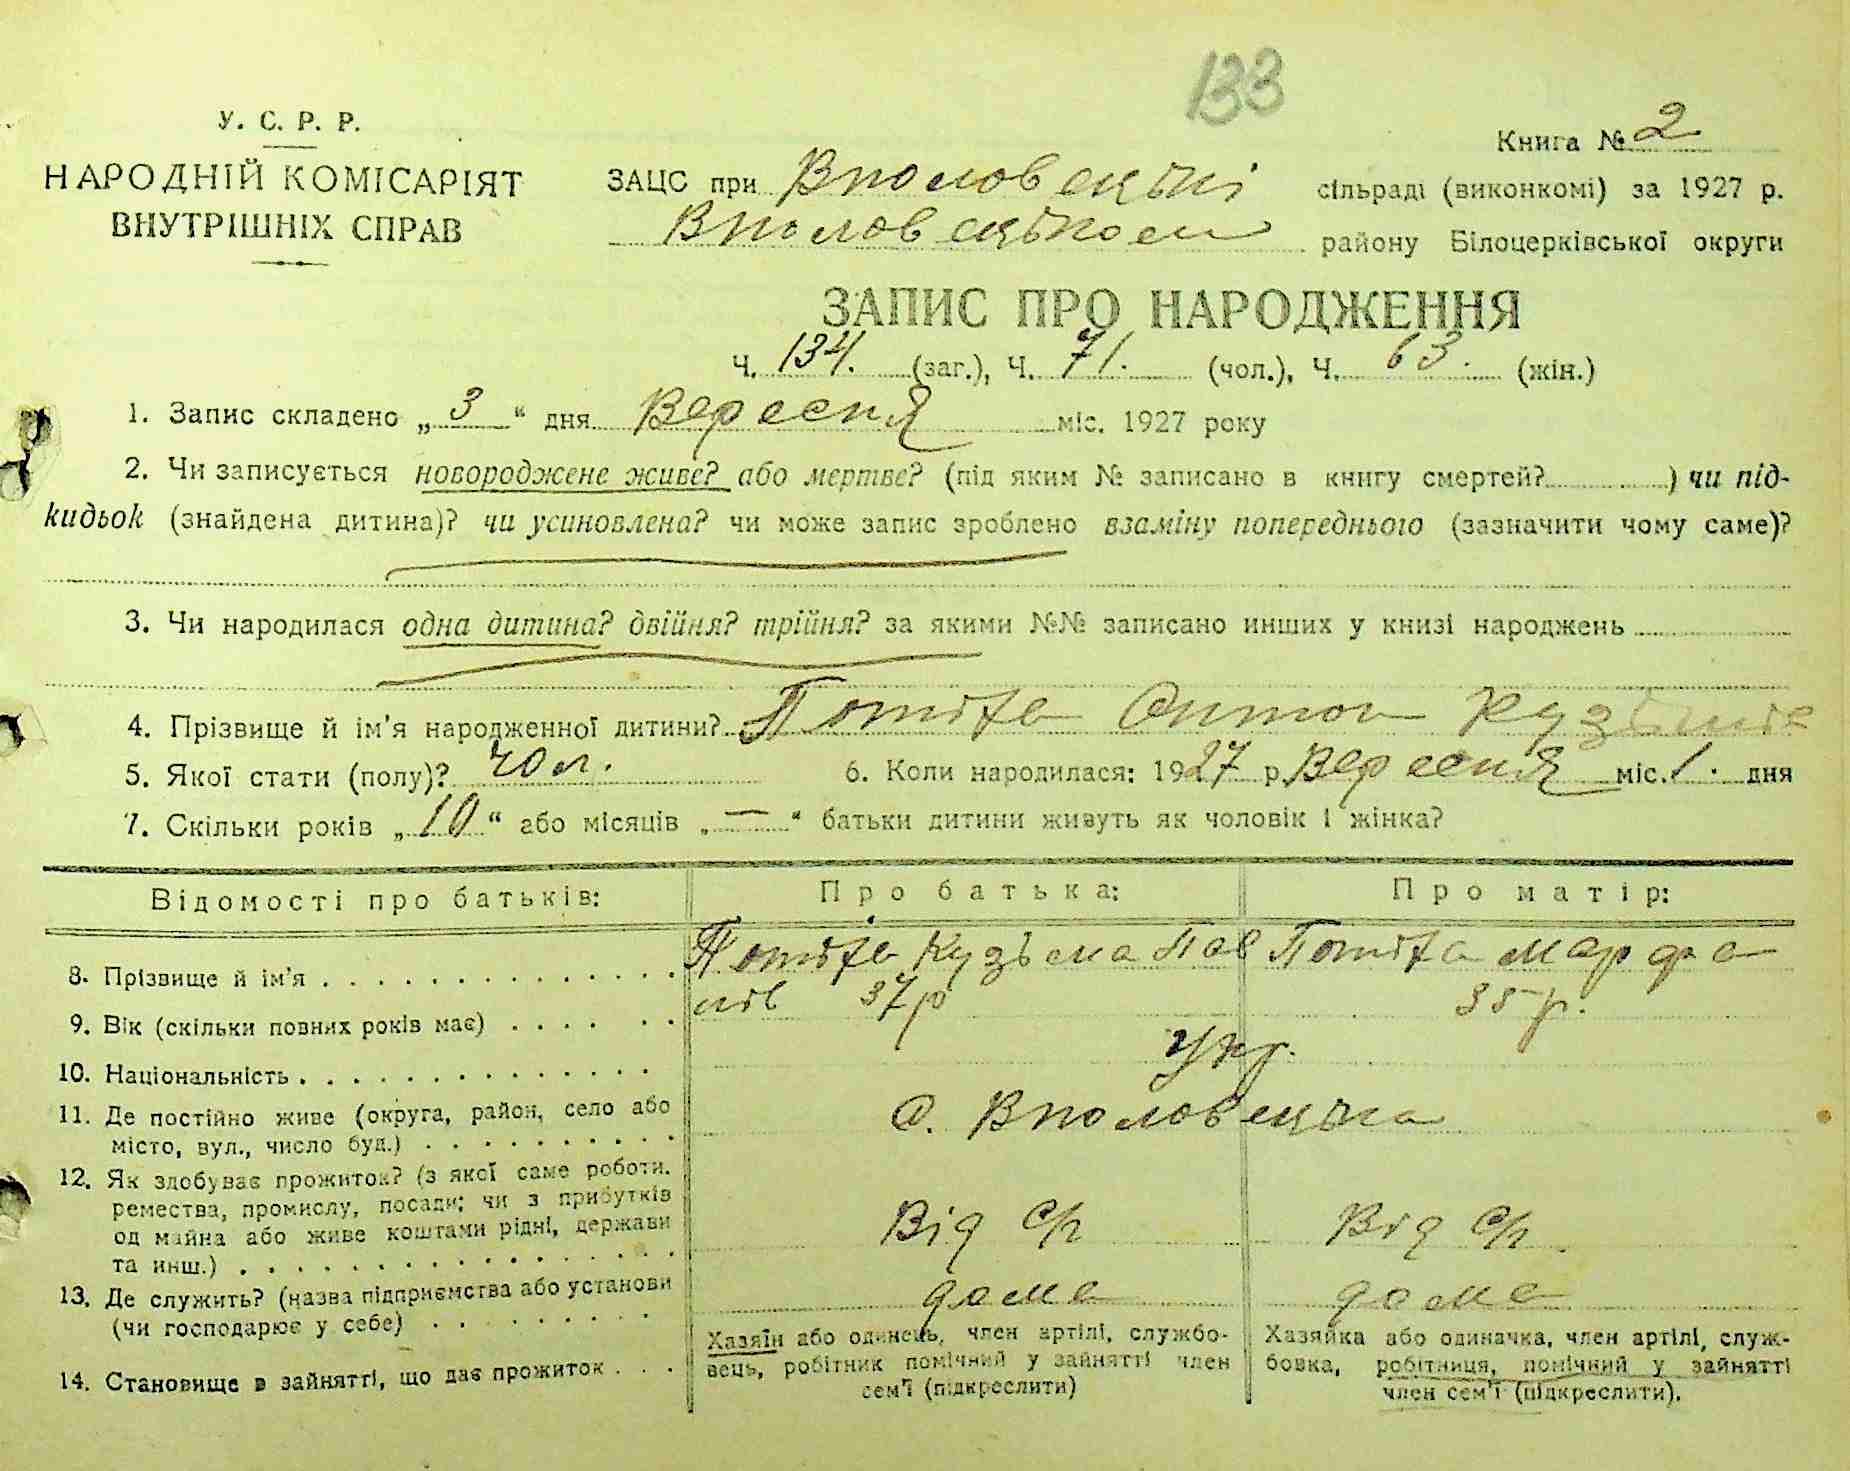 133
У. С. Р. Р.
НАРОДНІЙ КОМІСАРІЯТ
ВНУТРІШНІХ СПРАВ
Книга № 2
ЗАЦС при Вполовецькі сільраді (виконкомі) за 1927 р.
Вполовецьком району Білоцерківської округи
ЗАПИС ПРО НАРОДЖЕННЯ
Ч. 134. (заг.), Ч. 71. (чол.), Ч. 63. (жін.)
1. Запис складено „3“ дня Вересня міс. 1927 року
2. Чи записується новороджене живе? або мертве? (під яким № записано в книгу смертей? ) чи під-
кидьок (знайдена дитина)? чи усиновлена? чи може запис зроблено взаміну попереднього (зазначити чому саме)?
3. Чи народилася одна дитина? двійня? трійня? за якими №№ записано инших у книзі народжень
4. Прізвище й ім'я народженної дитини? Потіха Антон
5. Якої стати (полу)? чол. 6. Коли народилася: 1927 р. Вересня міс. 1. дня
7. Скільки років „10“ або місяців „—“ батьки дитини живуть як чоловік і жінка?
Відомості про батьків: Про батька: Про матір:
8. Прізвище й ім'я Потіха Кузьма Пав Потіха Марфа
9. Вік (скільки повних років має) лів 37р 35р.
10. Національність Укр.
11. Де постійно живе (округа, район, село або
місто, вул., число буд.) С. Вполовецька
12. Як здобуває прожиток? (з якої саме роботи,
ремества, промислу, посади; чи з прибутків
од майна або живе коштами рідні, держави Від с/г Від с/г.
та инш.)
13. Де служить? (назва підприємства або установи дома дома
(чи господарює у себе)
14. Становище в зайнятті, що дає прожиток
Хазяїн або одинець, член артілі, службо-
вець, робітник помічний у зайнятті член
сем'ї (підкреслити)
Хазяйка або одиначка, член артілі, служ-
бовка, робітниця, помічний у зайнятті
член сем'ї (підкреслити).